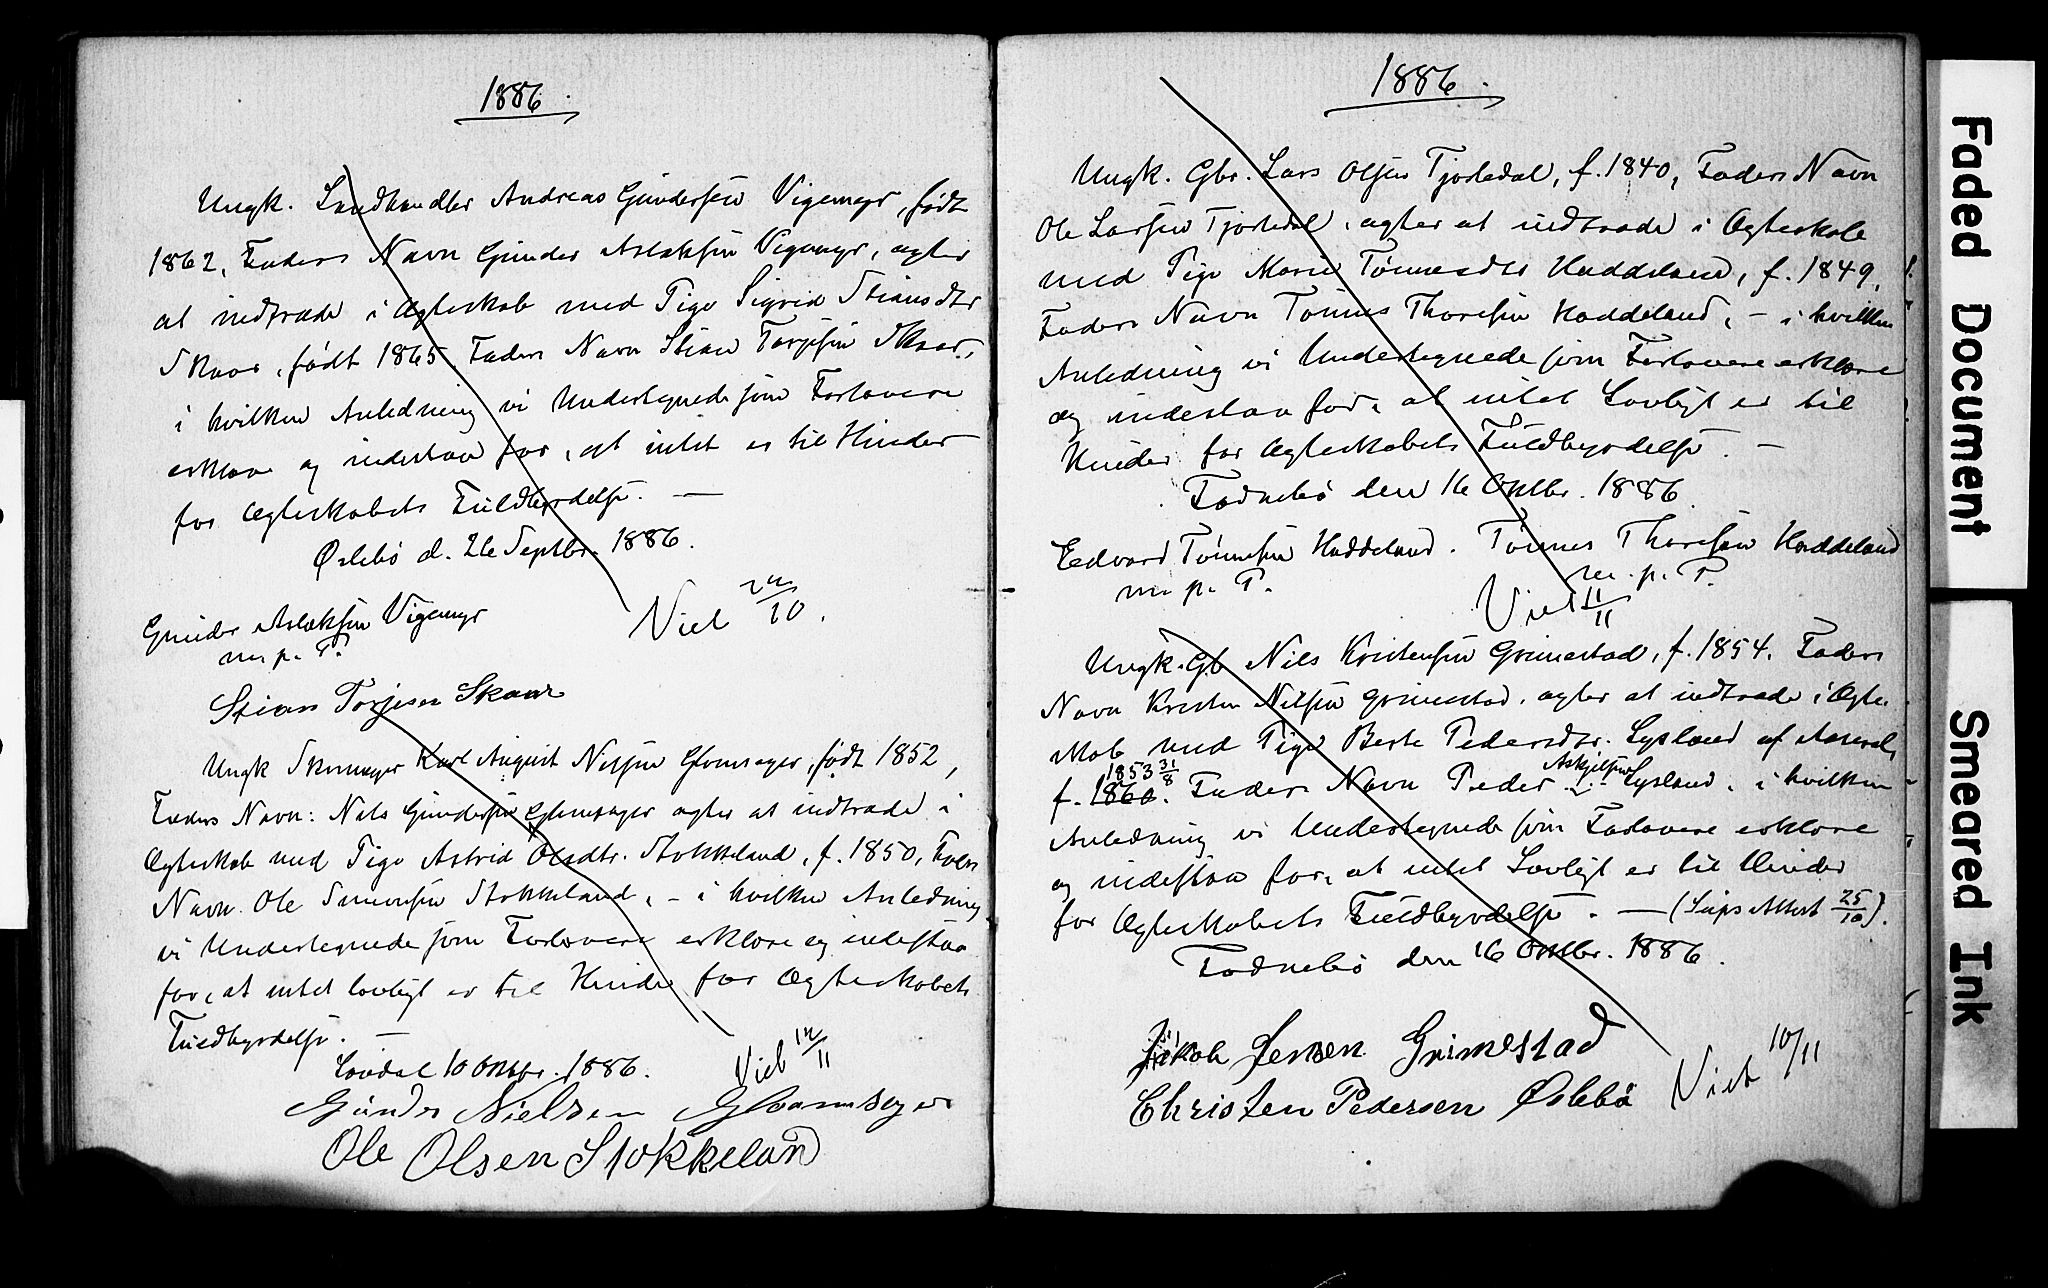 1886.
Ungk. Landhandler Andreas Gundersen Vigemyr, født
1862, Faders Navn Gunder Aslaksen Vigemyr, agter
at indtræde i Ægteskab med Pige Sigrid Stiansdtr
Skaar, født 1865, Faders Navn Stian Torjesen Skaar,
i hvilken Anledning vi Undertegnede som Forlovere
erklære og indestaae for, at intet er til Hinder
for Ægteskabets Fuldbyrdelse. —
Øslebø d. 26 Septbr. 1886.
Gunder Aslaksen Vigemyr
m. p. P.
Viet /10.
Stian Torjesen Skaar
Ungk Skomager Karl August Nilsen Glomsager, født 1852,
Faders Navn: Nils Gundersen Glomsager agter at indtræde i
Ægteskab med Pige Astrid Olsdtr. Stokkeland, f. 1850, Fders
Navn Ole Simonsen Stokkeland, – i hvilken Anledning
vi Undertegnede som Forlovere erklære og indestaa
for, at intet lovligt er til Hinder for Ægteskabets
Fuldbyrdelse. —
Laudal 10 Oktbr. 1886.
Viet /11
Gunder Nielsen Glommsager
Ole Olsen Stokkeland
1886.
Ungk. Gbr. Lars Olsen Tjortedal, f. 1840, Faders Navn
Ole Larsen Tjortedal, agter at indtræde i Ægteskab
med Pige Marie Tønnesdtr Haddeland, f. 1849,
Faders Navn Tønnes Thoresen Haddeland, – i hvilken
Anledning vi Undertegnede som Forlovere erklære
og indestaa for, at intet Lovligt er til
Hinder for Ægteskabets Fuldbyrdelse. —
Fodnebø den 16 Oktbr. 1886.
Eedvard Tønnesen Haddeland. Tønnes Thoresen Haddeland
m. p. P. m. p. P.
Viet 11/11
Ungk. Gb Nils Kristensen Grimestad, f. 1854, Faders
Navn Kristen Nilsen Grimestad, agter at indtræde i Ægte-
skab med Pige Berte Pedersdtr. Lysland af Aaseral,
1853 31/8 Askjelsen
f. 1860. Faders Navn Peder Lysland, i hvilken
Anledning vi Undertegnede som Forlovere erklære
og indestaa for, at intet Lovligt er til Hinder
for Ægteskabets Fuldbyrdelse. — ( Attest 25/10).
Fodnebø den 16 Oktbr. 1886.
Jakob Jensen Grimestad
Christen Pedersen Øslebö
Viet 10/11
Faded Document
Smeared Ink